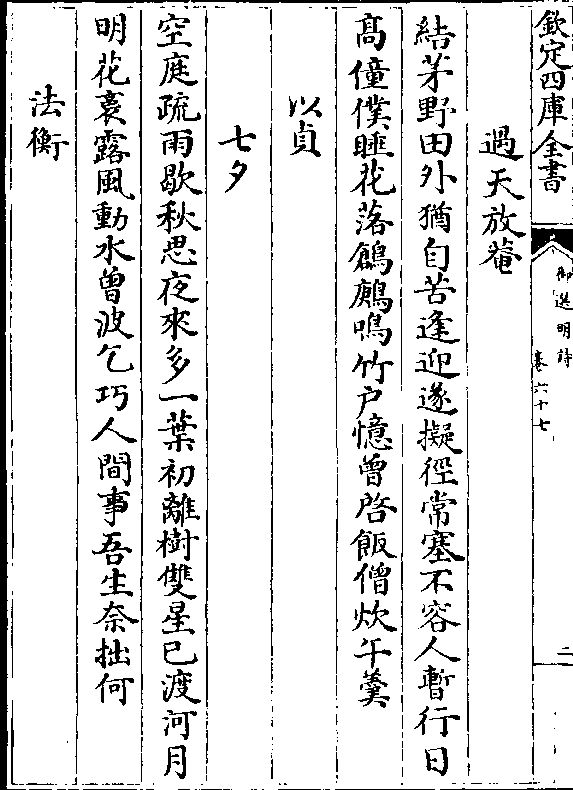 欽定四庫全書
御選明詩
卷六十七
二
過天放菴
結茅野田外猶自苦逢迎遂擬徑常塞不容人暫行日
高僮僕睡花落鷓鴣鳴竹户憶曾啓飯僧炊午羹
以貞
七夕
空庭疏雨歇秋思夜來多一葉初離樹雙星已渡河月
明花裛露風動水曾波乞巧人間事吾生奈拙何
法衡